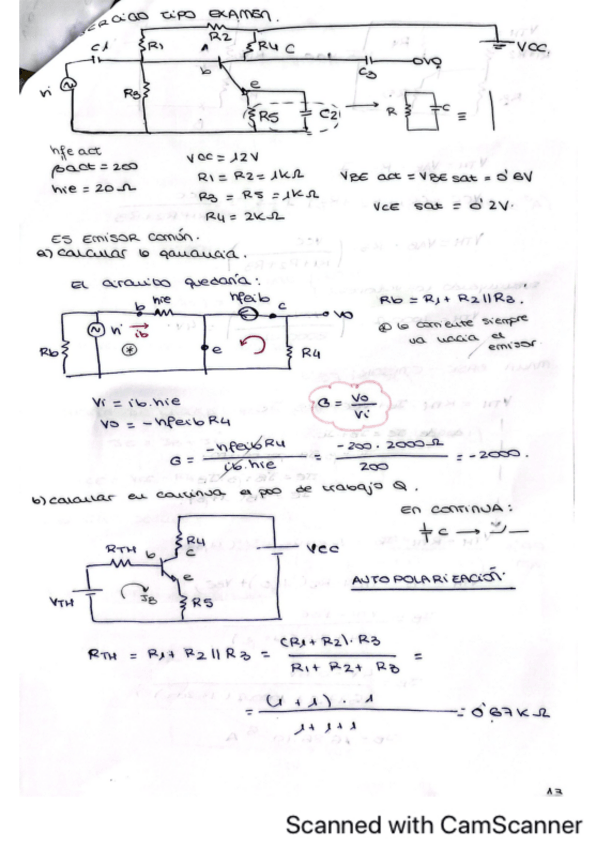 EJERCICIO TIPO EXAMEN.
R2
C1 R1 A R4 C VCC
b C3 VO
vi R3 e
R5 C2 R C ≡
hfe act
βact = 200
hie = 20 Ω
VCC = 12V
R1 = R2 = 1KΩ
R3 = R5 = 1KΩ
R4 = 2KΩ
VBE act = VBE sat = 0'6V
VCE sat = 0'2V.
ES EMISOR COMÚN.
a) calcular la ganancia.
El circuito quedaría:
b hie hfeib c VO
Rb vi ib * e R4
Rb = R1 + R2 // R3.
* la corriente siempre
va hacia el
emisor.
Vi = ib.hie
VO = -hfeib R4
G = VO / Vi
G = -hfeib R4 / ib.hie = -200 · 2000Ω / 200 = -2000.
b) calcular en continua el pto de trabajo Q.
EN CONTINUA:
C →
RTH b R4 c VCC
VTH IB e R5
AUTOPOLARIZACIÓN.
RTH = R1 + R2 // R3 = (R1 + R2) · R3 / R1 + R2 + R3 =
= (1 + 1) · 1 / 1 + 1 + 1 = 0'67KΩ
13
Scanned with CamScanner